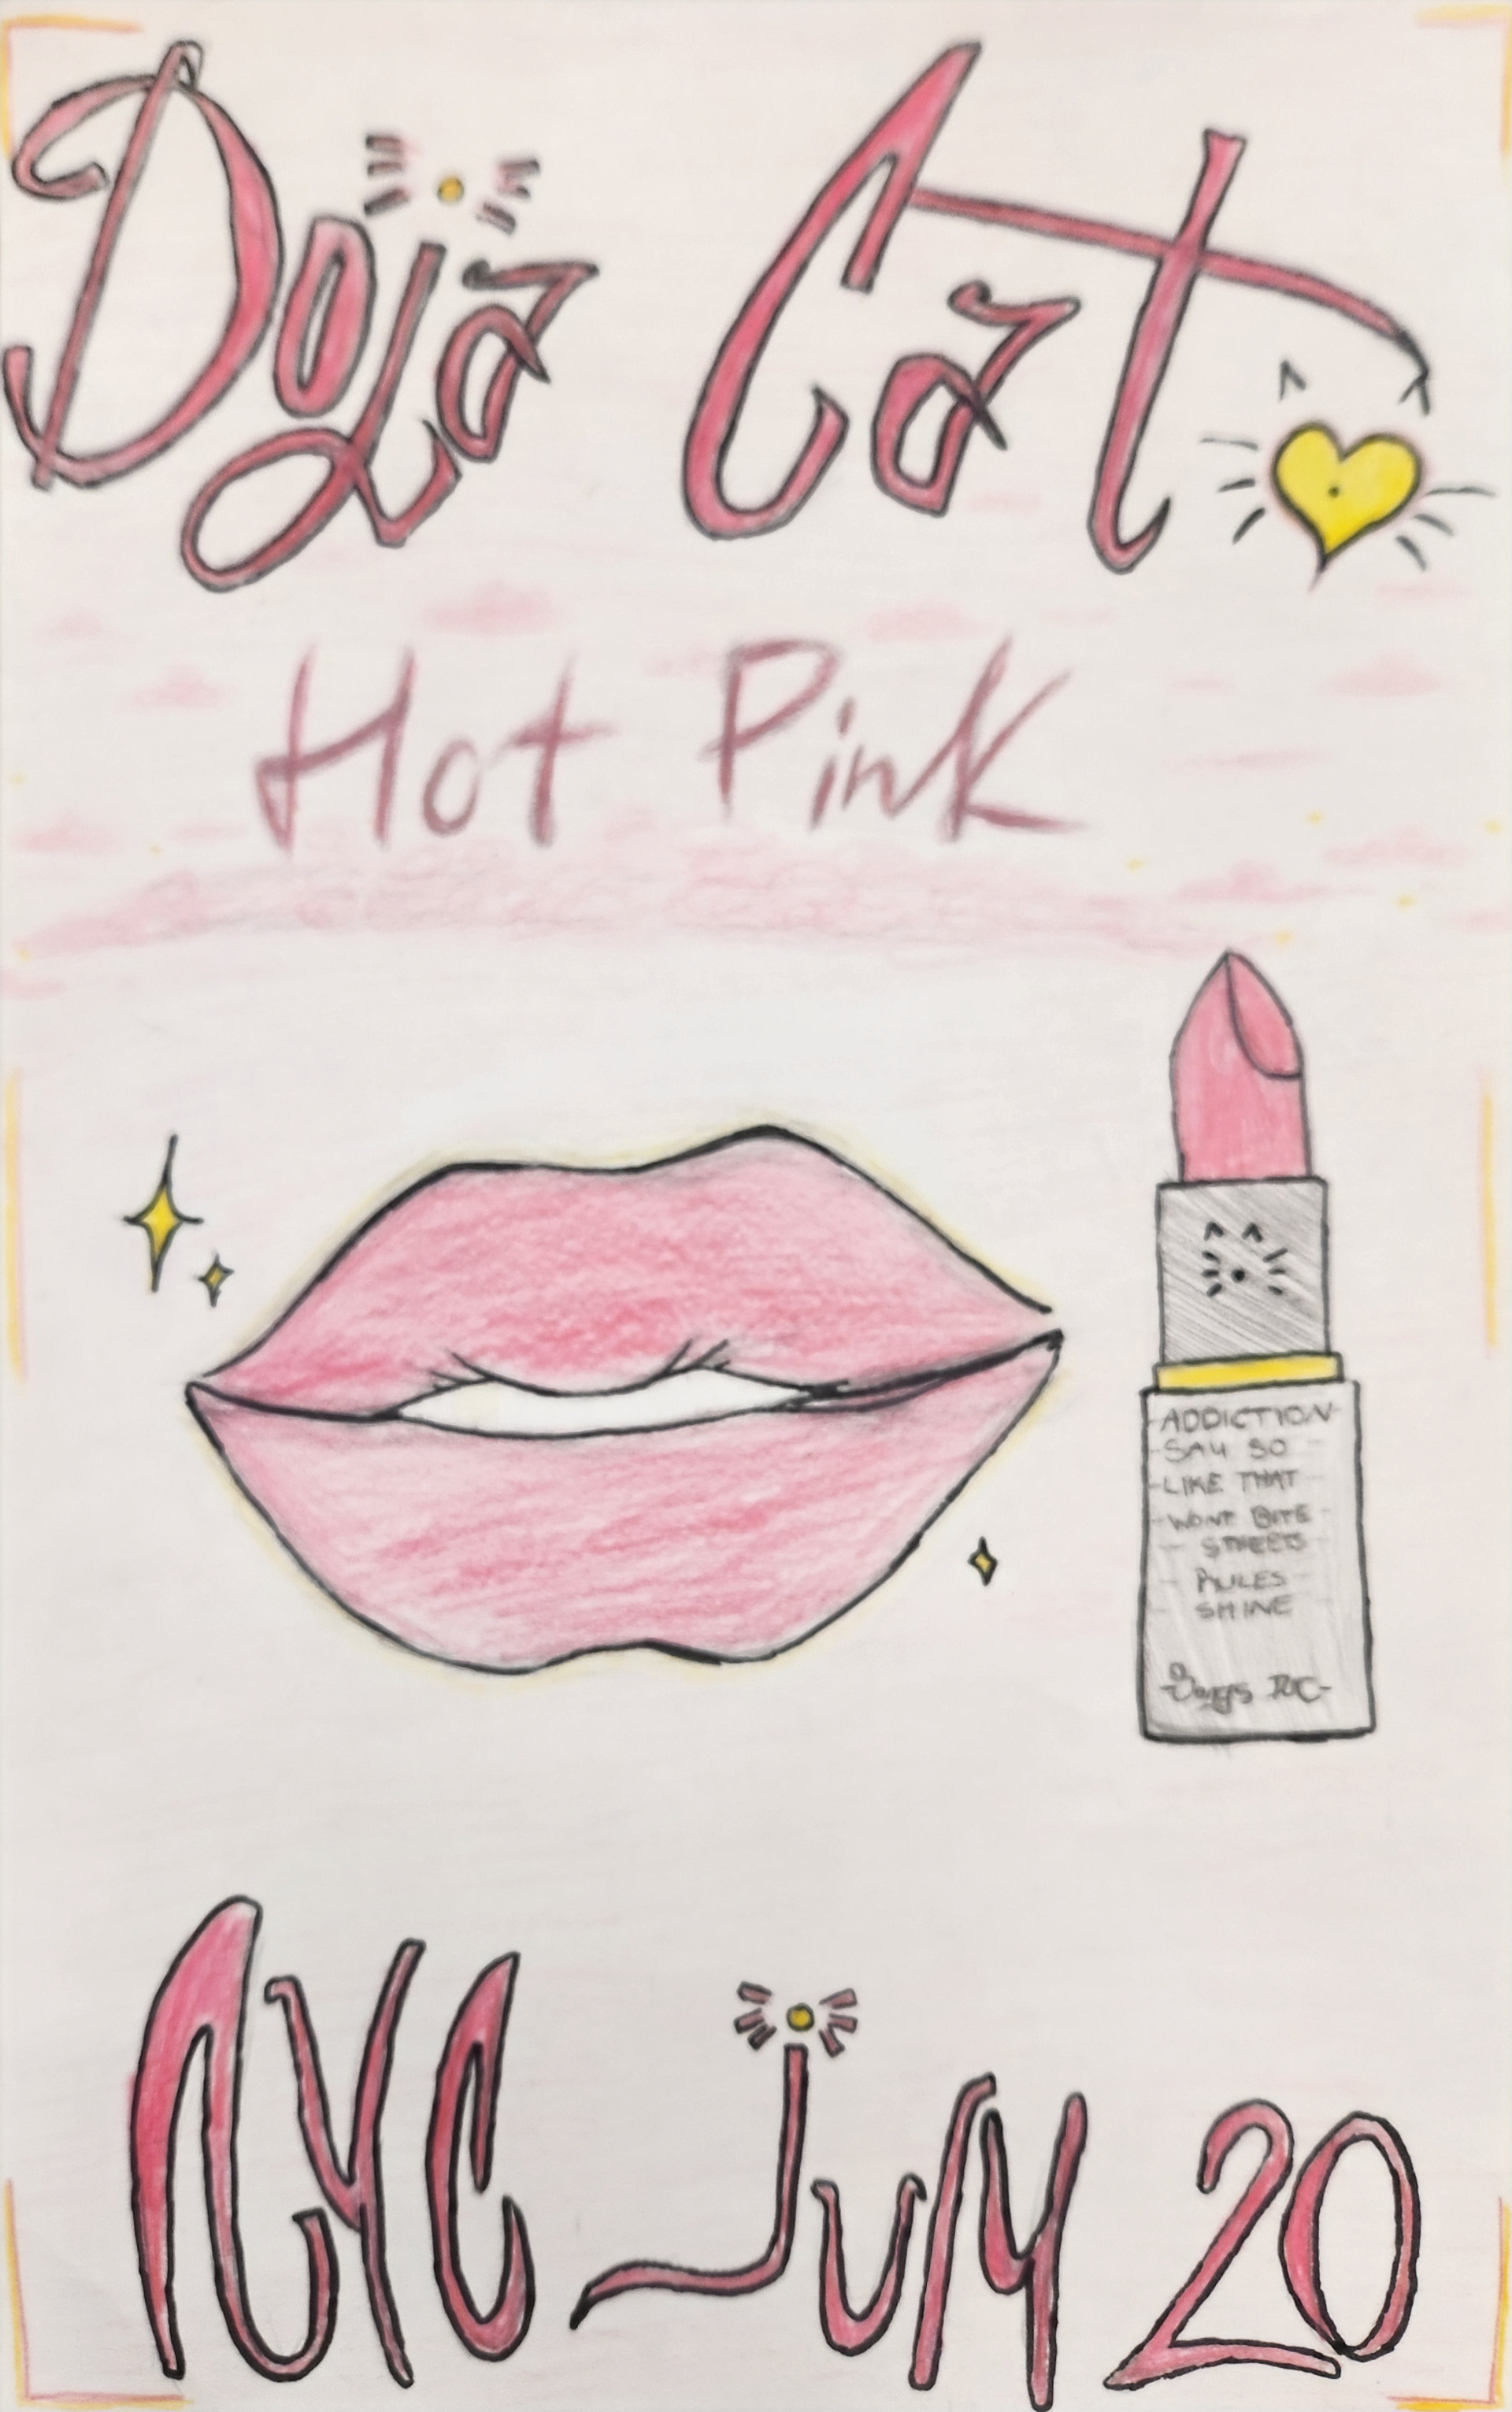 Doja Cat
Hot Pink
ADDICTION
SAY SO
LIKE THAT
WONT BITE
STREETS
RULES
SHINE
Songs
NYC July 20